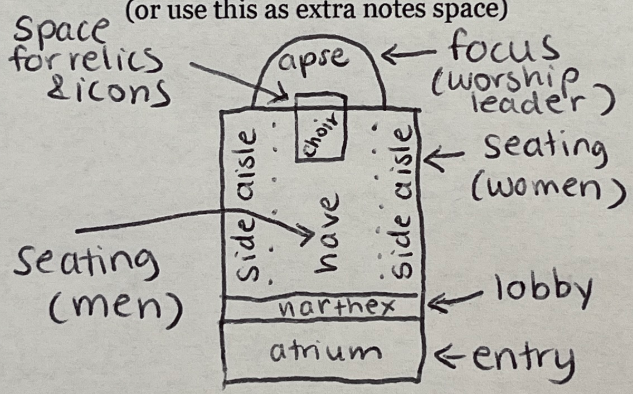 (or use this as extra notes space)
Space
for relics
& icons
apse
focus
(worship
leader)
choir
side aisle
nave
side aisle
seating
(women)
seating
(men)
narthex
lobby
atrium
entry